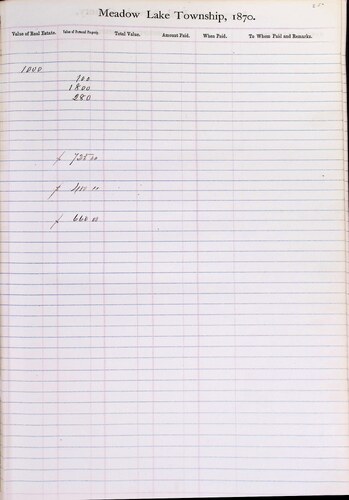 Meadow Lake Township, 1870.
Value of Real Estate. Value of Personal Property. Total Value. Amount Paid. When Paid. To Whom Paid and Remarks.
1000
100
1800
280
725 00
400 00
660 00